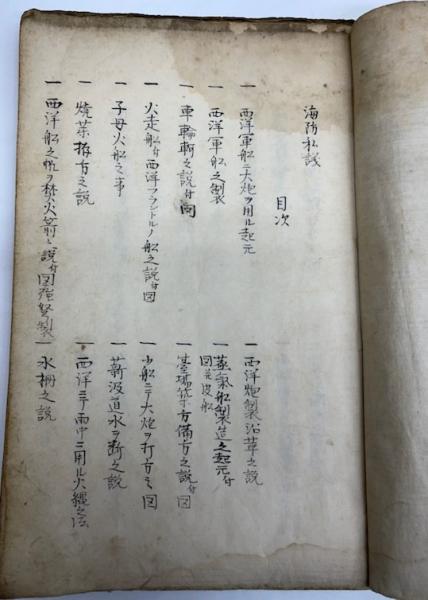 海防私議
目次
一 西洋軍船ニ大炮ヲ用ル起元
一 西洋炮製沿革之説
一 西洋軍船之製
一 蒸氣船製造之起元付
図并浚船
一 車輪斬之説付図
一 臺場築方備方之説付図
一 火走船付西洋フランドルノ船之説付図
一 小船ニテ大炮ヲ打方之図
一 子母火船之事
一 薪汲道水ヲ断之説
一 焼薬拵方之説
一 西洋ニテ雨中ニ用ル火縄之法
一 西洋船之帆ヲ焚火箭之説付図強弩製
一 水柵之説